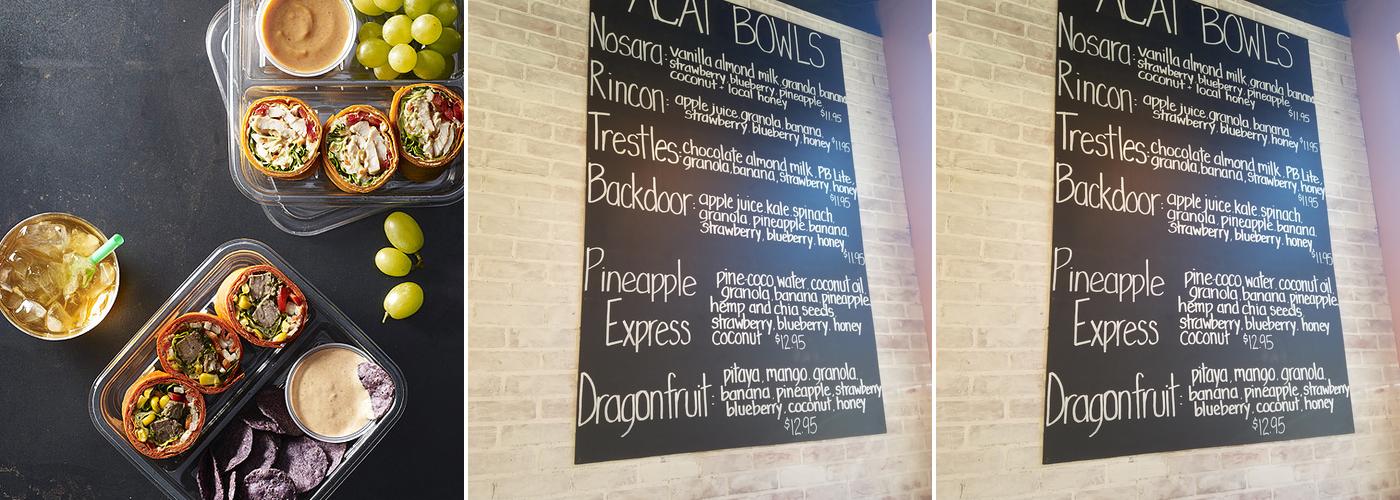 ACAI BOWLS
Nosara: vanilla almond milk, granola, banana
strawberry, blueberry, pineapple,
coconut + local honey $11.95
Rincon: apple juice, granola, banana,
strawberry, blueberry, honey $11.95
Trestles: chocolate almond milk, PB Lite,
granola, banana, strawberry, honey
$11.95
Backdoor: apple juice, kale, spinach,
granola, pineapple, banana,
strawberry, blueberry, honey
$11.95
Pineapple Express
pine-coco water, coconut oil,
granola, banana, pineapple,
hemp and chia seeds,
strawberry, blueberry, honey
coconut $12.95
Dragonfruit: pitaya, mango, granola,
banana, pineapple, strawberry
blueberry, coconut, honey
$12.95
ACAI BOWLS
Nosara: vanilla almond milk, granola, banana
strawberry, blueberry, pineapple,
coconut + local honey $11.95
Rincon: apple juice, granola, banana,
strawberry, blueberry, honey $11.95
Trestles: chocolate almond milk, PB Lite,
granola, banana, strawberry, honey
$11.95
Backdoor: apple juice, kale, spinach,
granola, pineapple, banana,
strawberry, blueberry, honey
$11.95
Pineapple Express
pine-coco water, coconut oil,
granola, banana, pineapple,
hemp and chia seeds,
strawberry, blueberry, honey
coconut $12.95
Dragonfruit: pitaya, mango, granola,
banana, pineapple, strawberry
blueberry, coconut, honey
$12.95